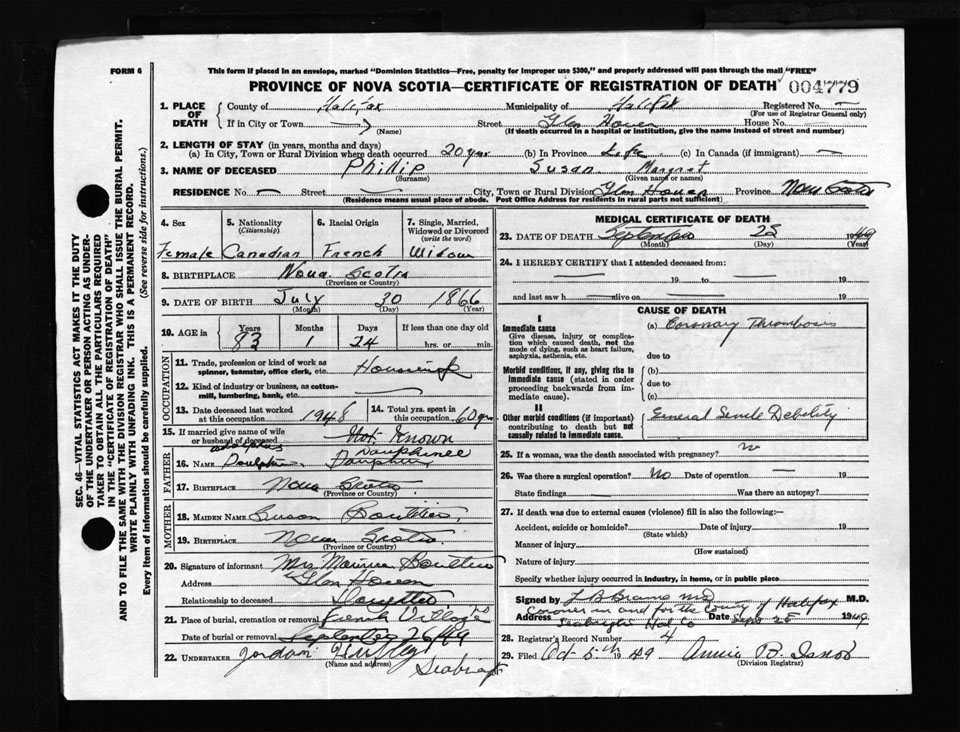 FORM 6
This form if placed in an envelope, marked "Dominion Statistics—Free, penalty for improper use $300," and properly addressed will pass through the mail "FREE"
PROVINCE OF NOVA SCOTIA—CERTIFICATE OF REGISTRATION OF DEATH 004779
1. PLACE OF DEATH County of Halifax Municipality of Halifax Registered No. —
(For use of Registrar General only)
If in City or Town (Name) Street Glen Haven House No.
(If death occurred in a hospital or institution, give the name instead of street and number)
2. LENGTH OF STAY (in years, months and days)
(a) In City, Town or Rural Division where death occurred 20 yrs (b) In Province Life (c) In Canada (if immigrant) —
3. NAME OF DECEASED Phillip Susan Margret
(Surname) (Given name or names)
RESIDENCE No. — Street — City, Town or Rural Division Glen Haven Province Nova Scotia
(Residence means usual place of abode. Post Office Address for residents in rural parts not sufficient)
4. Sex Female
5. Nationality (Citizenship) Canadian
6. Racial Origin French
7. Single, Married, Widowed or Divorced (write the word) Widow
8. BIRTHPLACE Nova Scotia
(Province or Country)
9. DATE OF BIRTH July 30 1866
(Month) (Day) (Year)
10. AGE in Years 83 Months 1 Days 24 If less than one day old hrs. or min.
OCCUPATION
11. Trade, profession or kind of work as spinner, teamster, office clerk, etc.
12. Kind of industry or business, as cotton-mill, lumbering, bank, etc.
13. Date deceased last worked at this occupation 1948 14. Total yrs. spent in this occupation 60 yrs
15. If married give name of wife or husband of deceased Not Known
FATHER
16. NAME Adolphus Dauphinee
17. BIRTHPLACE Nova Scotia
(Province or Country)
MOTHER
18. MAIDEN NAME Susan Boutilier
19. BIRTHPLACE Nova Scotia
(Province or Country)
20. Signature of informant Mrs Maurice Boutilier
Address Glen Haven
Relationship to deceased Daughter
21. Place of burial, cremation or removal French Village
Date of burial or removal September 26/49
22. UNDERTAKER Jordan
(Name and address)
MEDICAL CERTIFICATE OF DEATH
23. DATE OF DEATH September 25 1949
(Month) (Day) (Year)
24. I HEREBY CERTIFY that I attended deceased from:
19 to 19
and last saw h alive on 19
CAUSE OF DEATH
I
Immediate cause
Give disease, injury or complication which caused death, not the mode of dying, such as heart failure, asphyxia, asthenia, etc.
(a) Coronary Thrombosis
due to
Morbid conditions, if any, giving rise to immediate cause (stated in order proceeding backwards from immediate cause).
(b)
due to
(c)
II
Other morbid conditions (if important) contributing to death but not causally related to immediate cause.
General Senile Debility
25. If a woman, was the death associated with pregnancy? no
26. Was there a surgical operation? No Date of operation — 19
State findings Was there an autopsy?
27. If death was due to external causes (violence) fill in also the following:—
Accident, suicide or homicide? Date of injury 19
(State which)
Manner of injury
(How sustained)
Nature of injury
Specify whether injury occurred in industry, in home, or in public place
Signed by M.D.
Coroner in and for the County of Halifax
Address Seabright Hal Co Date Sept 25 1949
28. Registrar's Record Number 4
29. Filed Oct 5th 1949 Annie B.
(Division Registrar)
SEC. 46—VITAL STATISTICS ACT MAKES IT THE DUTY
OF THE UNDERTAKER OR PERSON ACTING AS UNDER-
TAKER TO OBTAIN ALL THE PARTICULARS REQUIRED
IN THE "CERTIFICATE OF REGISTRATION OF DEATH"
AND TO FILE THE SAME WITH THE DIVISION REGISTRAR WHO SHALL ISSUE THE BURIAL PERMIT.
WRITE PLAINLY WITH UNFADING INK. THIS IS A PERMANENT RECORD.
Every item of information should be carefully supplied. (See reverse side for instructions.)